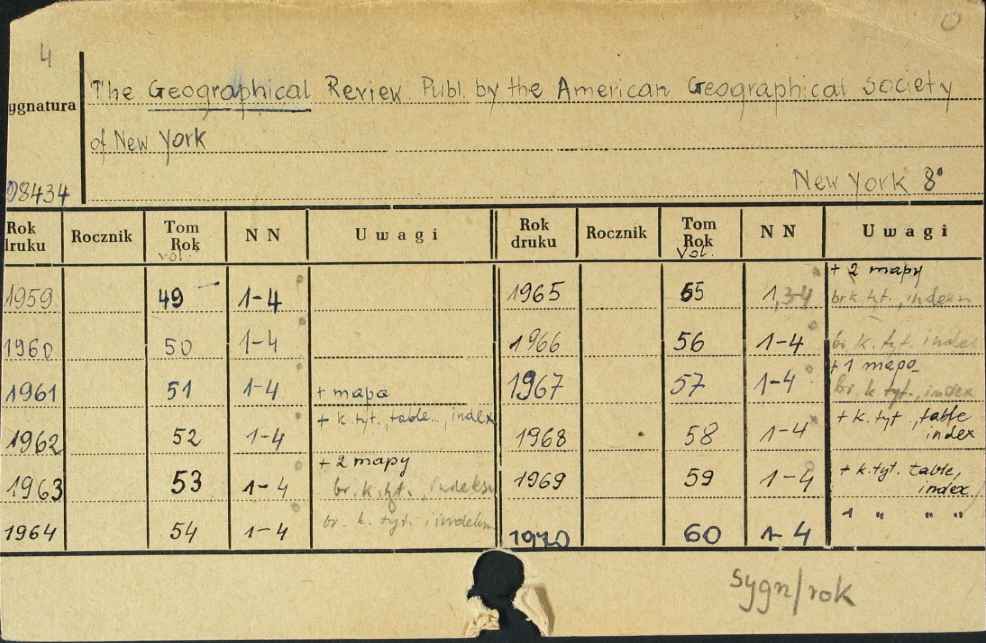 4
The Geographical Review Publ. by the American Geographical Society
ygnatura
of New York
98434
New York 8°
Rok druku Rocznik Tom Rok vol. NN Uwagi Rok druku Rocznik Tom Rok Vol. NN Uwagi
1959 49 1-4 1965 55 1,3-4 + 2 mapy br k. tyt., indexu
1960 50 1-4 1966 56 1-4 br k. tyt. index
1961 51 1-4 + mapa 1967 57 1-4 + 1 mapa br. k tyt., index
1962 52 1-4 + k. tyt., table., index 1968 58 1-4 + k. tyt., table index
1963 53 1-4 + 2 mapy br. k. tyt., indeksu 1969 59 1-4 + k. tyt. table, index
1964 54 1-4 br. k. tyt. i indeksu 1970 60 1-4 1 " " "
sygn/rok